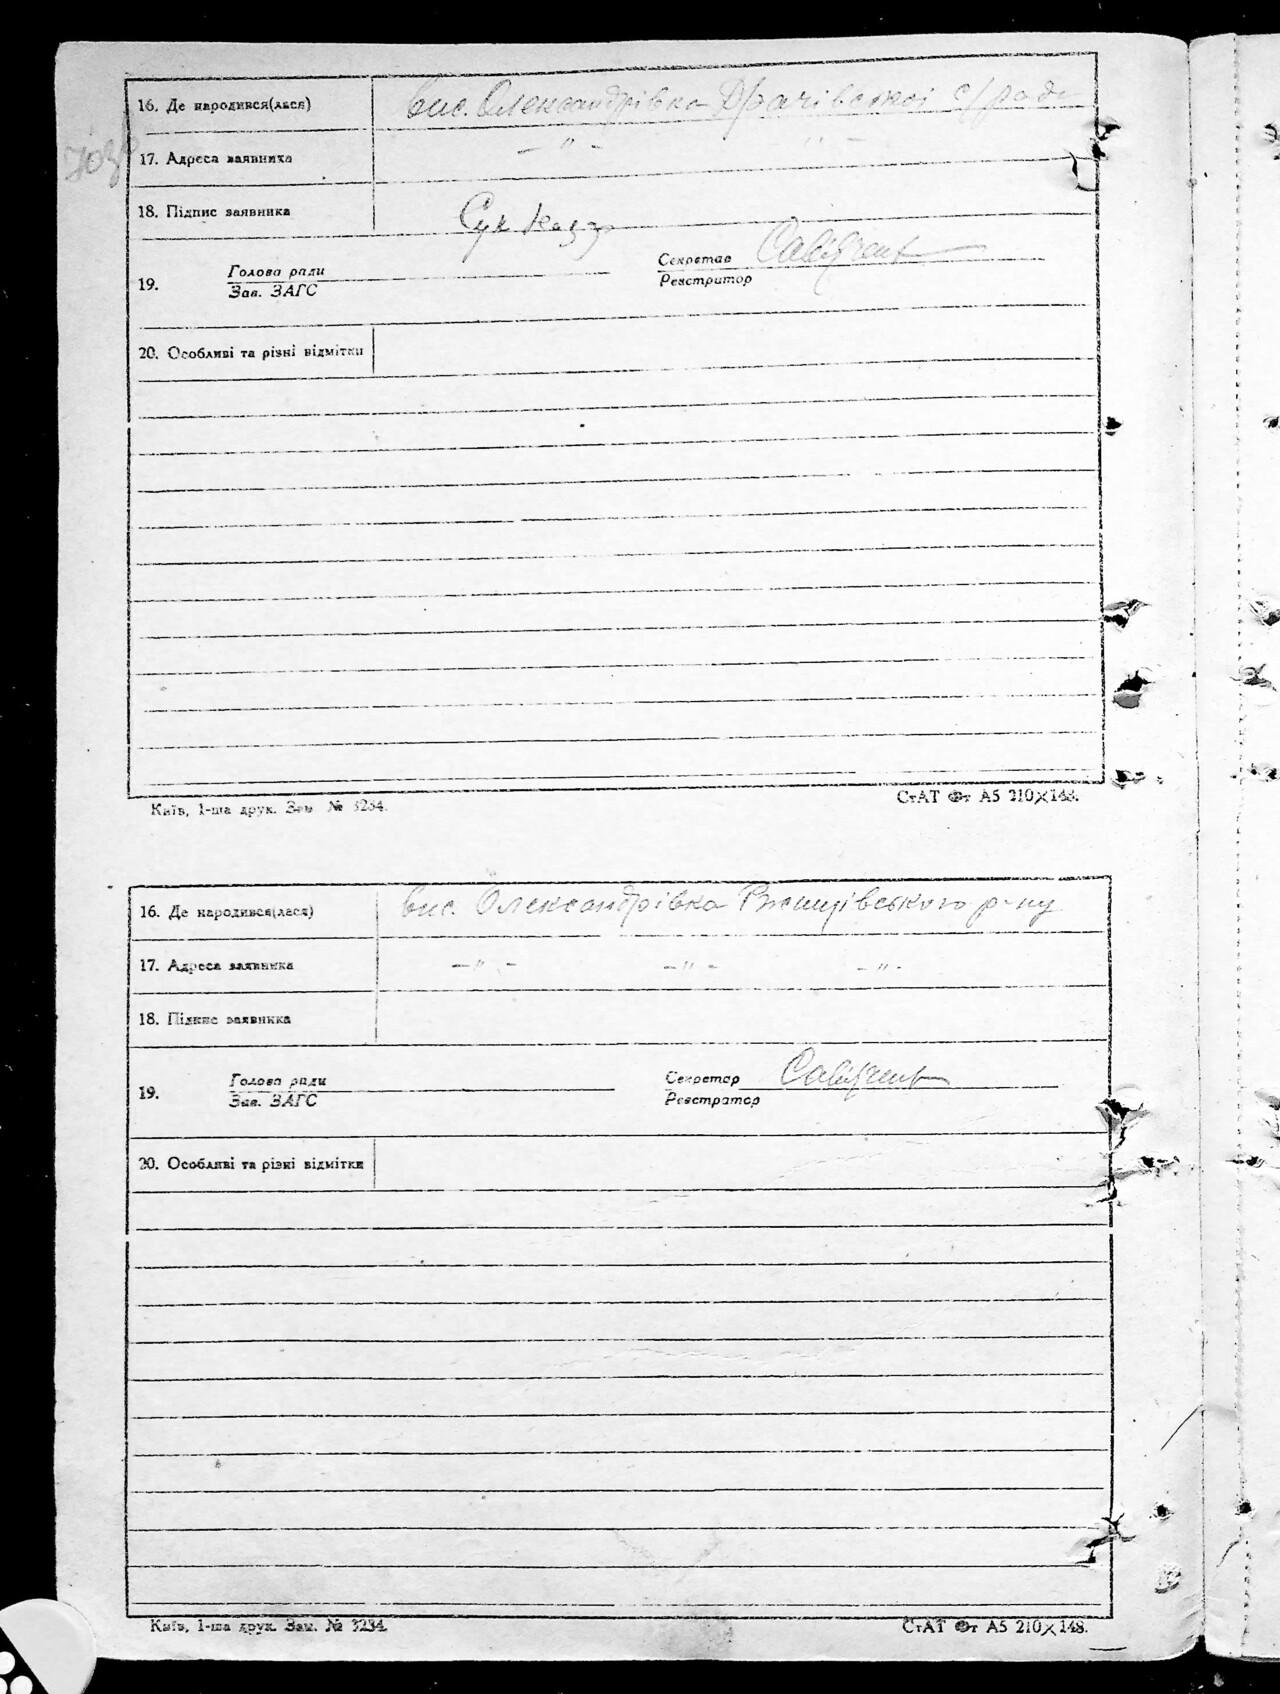 16. Де народився(лася) вис. Олександрівка Драчівської с/ради
17. Адреса заявника - " - - " -
18. Підпис заявника Сук
19. Голова ради Секретар
Зав. ЗАГС Реєстратор
20. Особливі та різні відмітки
Київ, 1-ша друк. Зам. № 3234. СтАТ Фт А5 210×148.
16. Де народився(лася) вис. Олександрівка Ржищівського р-ну
17. Адреса заявника - " - - " - - " -
18. Підпис заявника
19. Голова ради Секретар
Зав. ЗАГС Реєстратор
20. Особливі та різні відмітки
Київ, 1-ша друк. Зам. № 3234. СтАТ Фт А5 210×148.